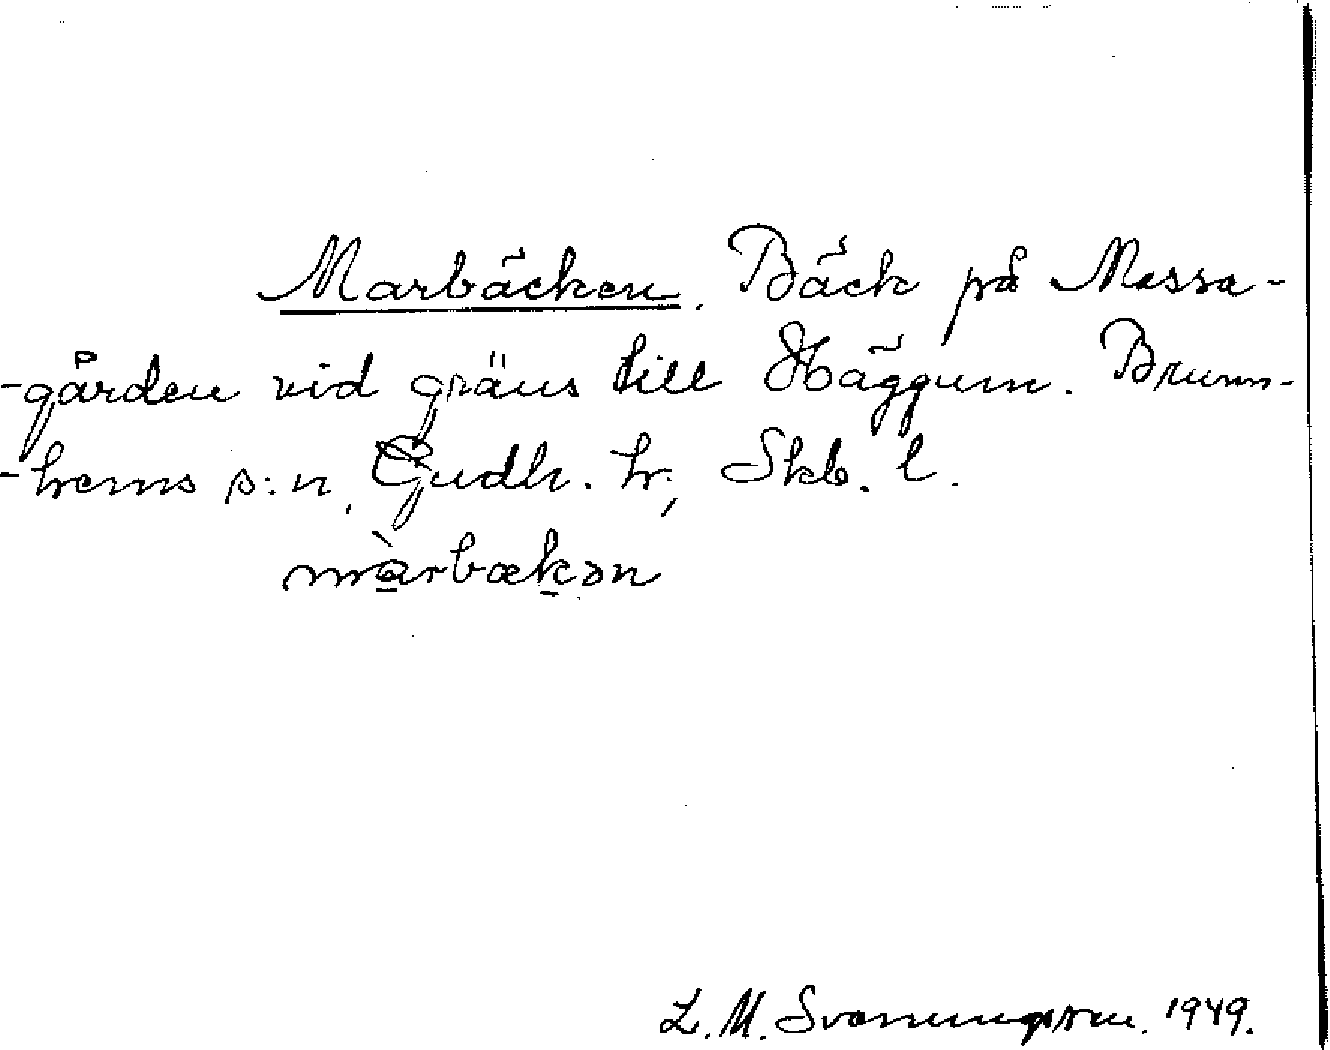 Marbäcken. Bäck på Massa-
-gården vid gräns till Häggum. Brunn-
-hems s:n, Gudh. hr, Skb. l.
màrbækən
L. M. Svanungsson. 1949.